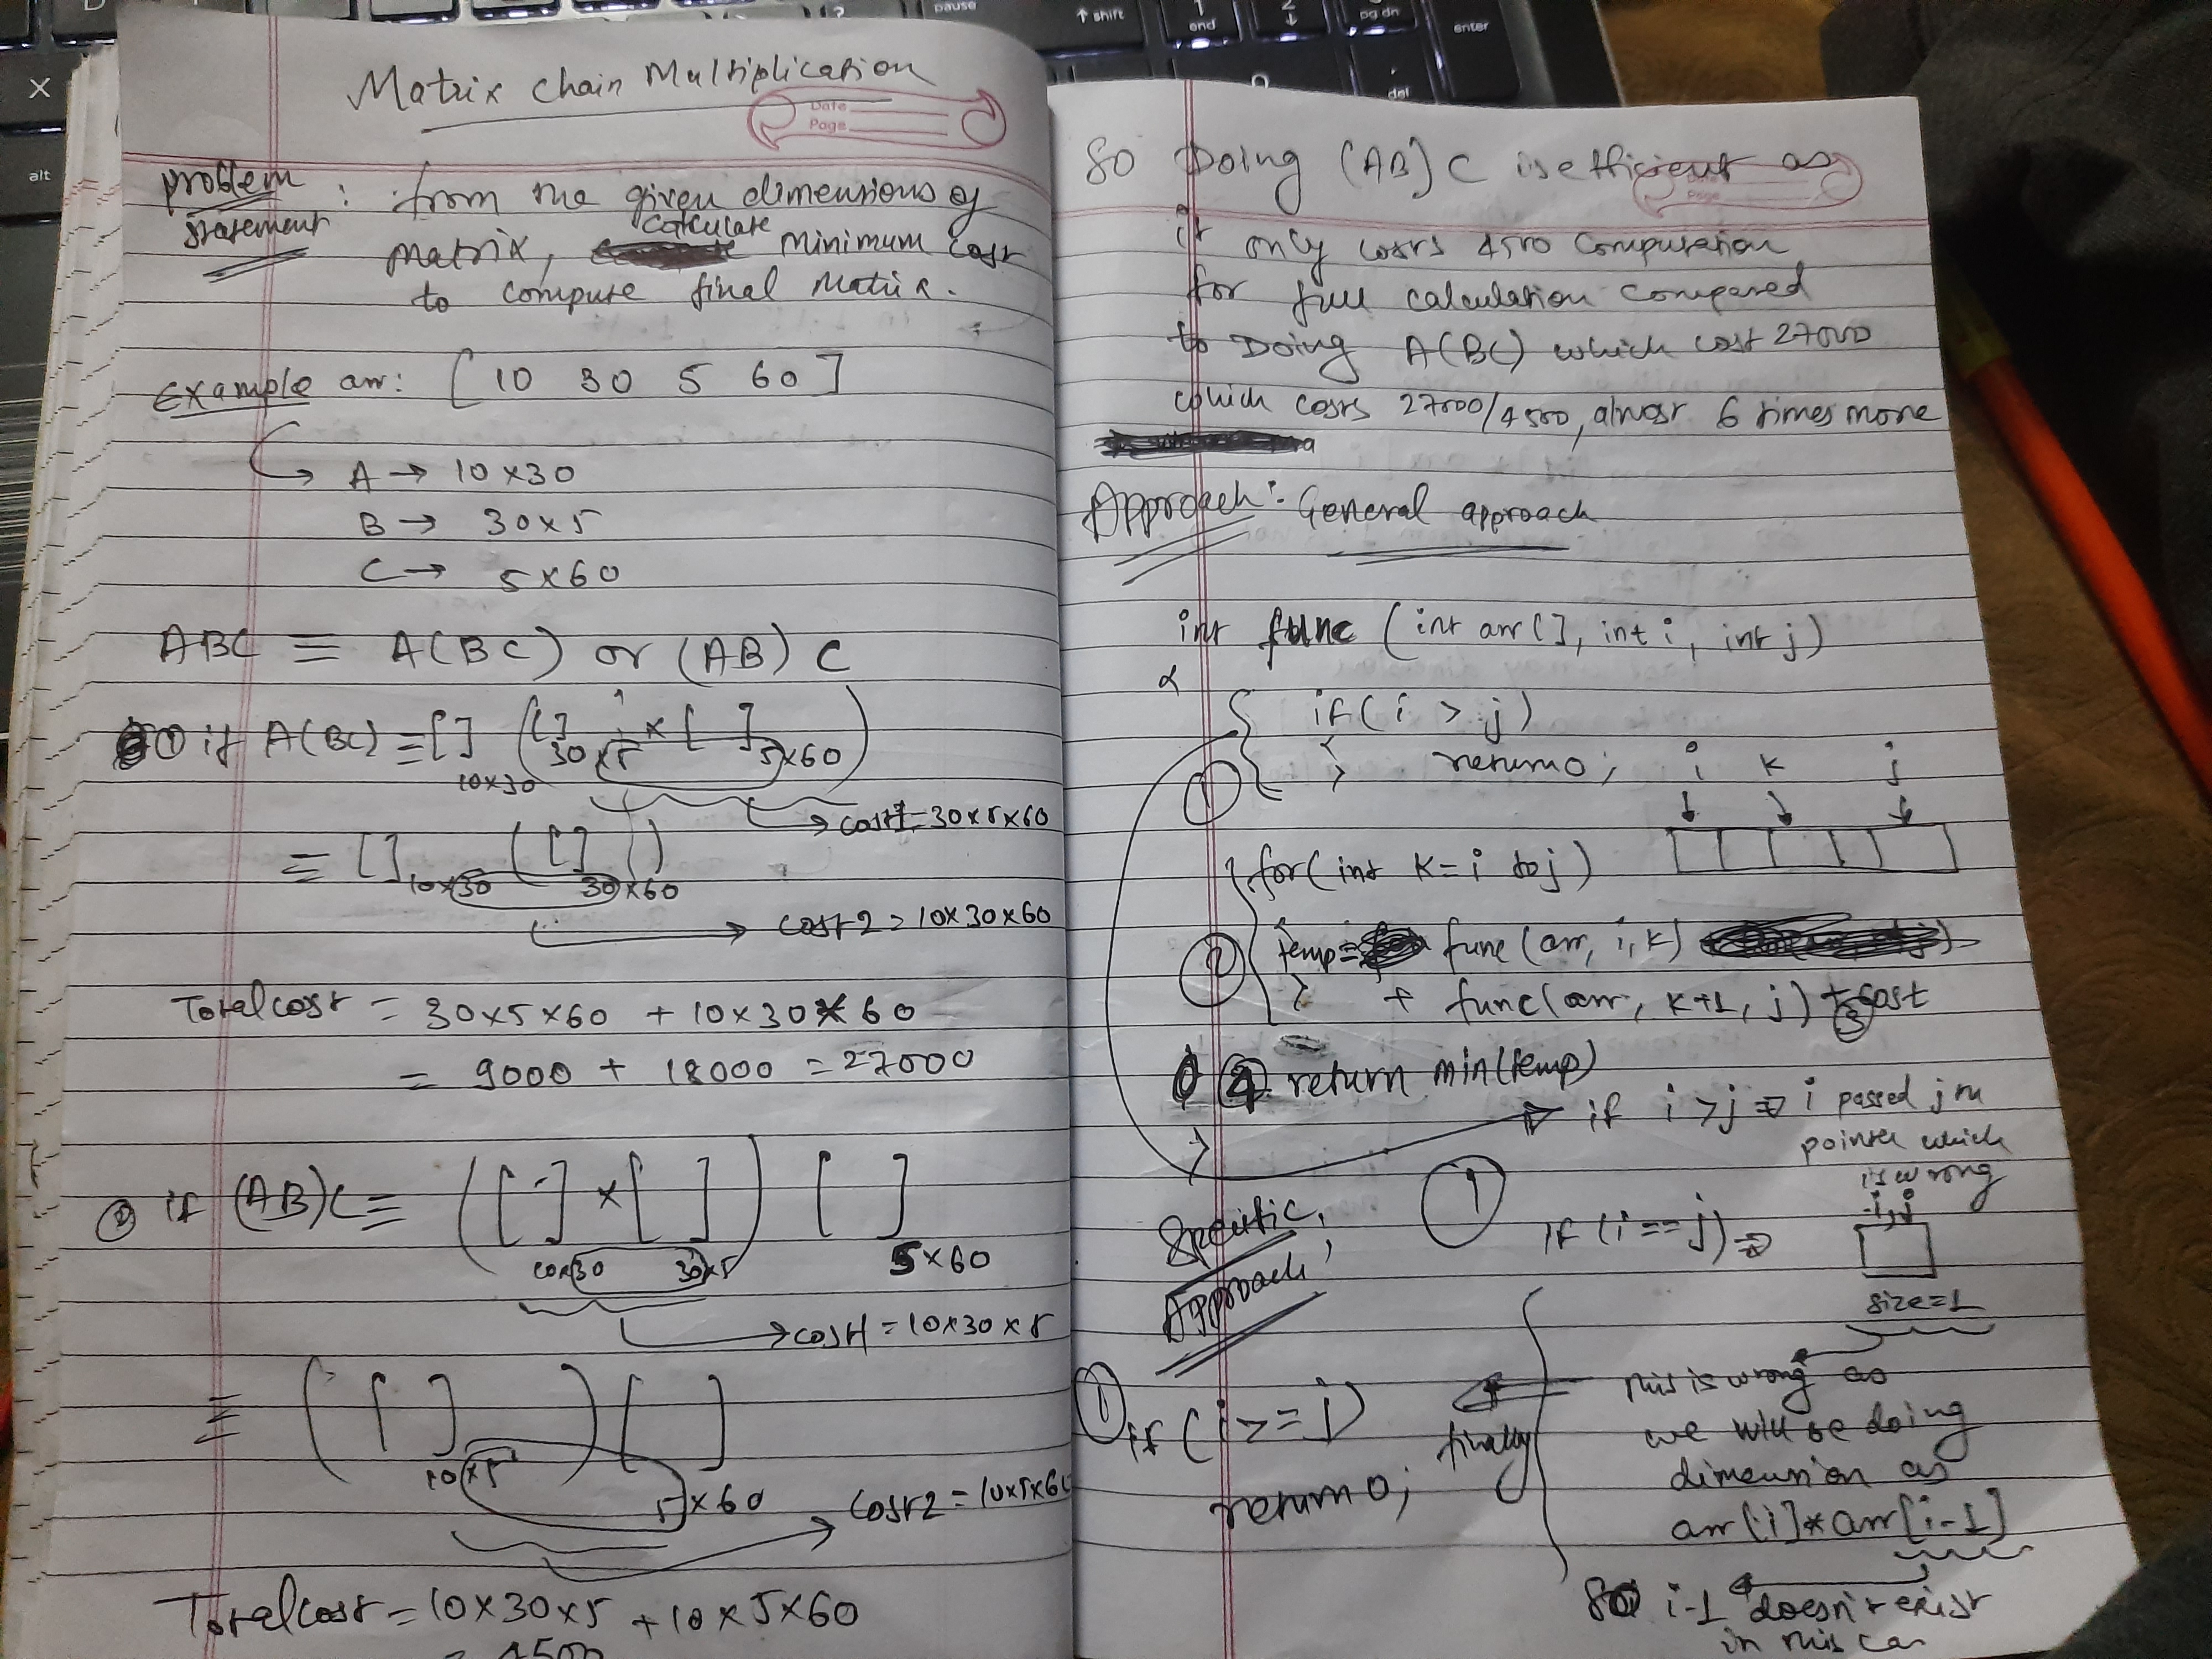 Matrix chain Multiplication
Date
Page
problem statement : from the given dimensions of
matrix, calculate minimum cost
to compute final matrix.
Example arr: [ 10 30 5 60 ]
A → 10 × 30
B → 30 × 5
C → 5 × 60
ABC ≡ A(BC) or (AB) C
① if A(BC) = [ ] 10×30 ( [ ] 30×5 × [ ] 5×60 )
→ cost1 = 30×5×60
= [ ] 10×30 ( [ ] 30×60 )
→ cost 2 = 10×30×60
Total cost = 30×5×60 + 10×30×60
= 9000 + 18000 = 27000
② if (AB)C ≡ ( [ ] 10×30 × [ ] 30×5 ) [ ] 5×60
→ cost1 = 10×30×5
≡ ( [ ] 10×5 ) [ ] 5×60
→ cost 2 = 10×5×60
Total cost = 10×30×5 + 10×5×60
= 4500
So Doing (AB) C is efficient as
it only costs 4500 computation
for full calculation compared
to Doing A(BC) which cost 27000
which costs 27000/4500, almost 6 times more
Approach :- General approach
int func ( int arr[], int i, int j )
{ if ( i > j )
{ return 0;
}
①
i k j
for ( int k = i to j )
② { temp = func (arr, i, k)
} + func (arr, k+1, j) + cost
③
④ return min(temp)
}
→ if i > j ⇒ i passed j
pointer which
is wrong
Specific Approach
①
if (i == j) ⇒
i, j
size = 1
this is wrong as
we will be doing
dimension as
arr[i] * arr[i-1]
So i-1 doesn't exist
in this
finally
① if ( i >= j )
return 0;